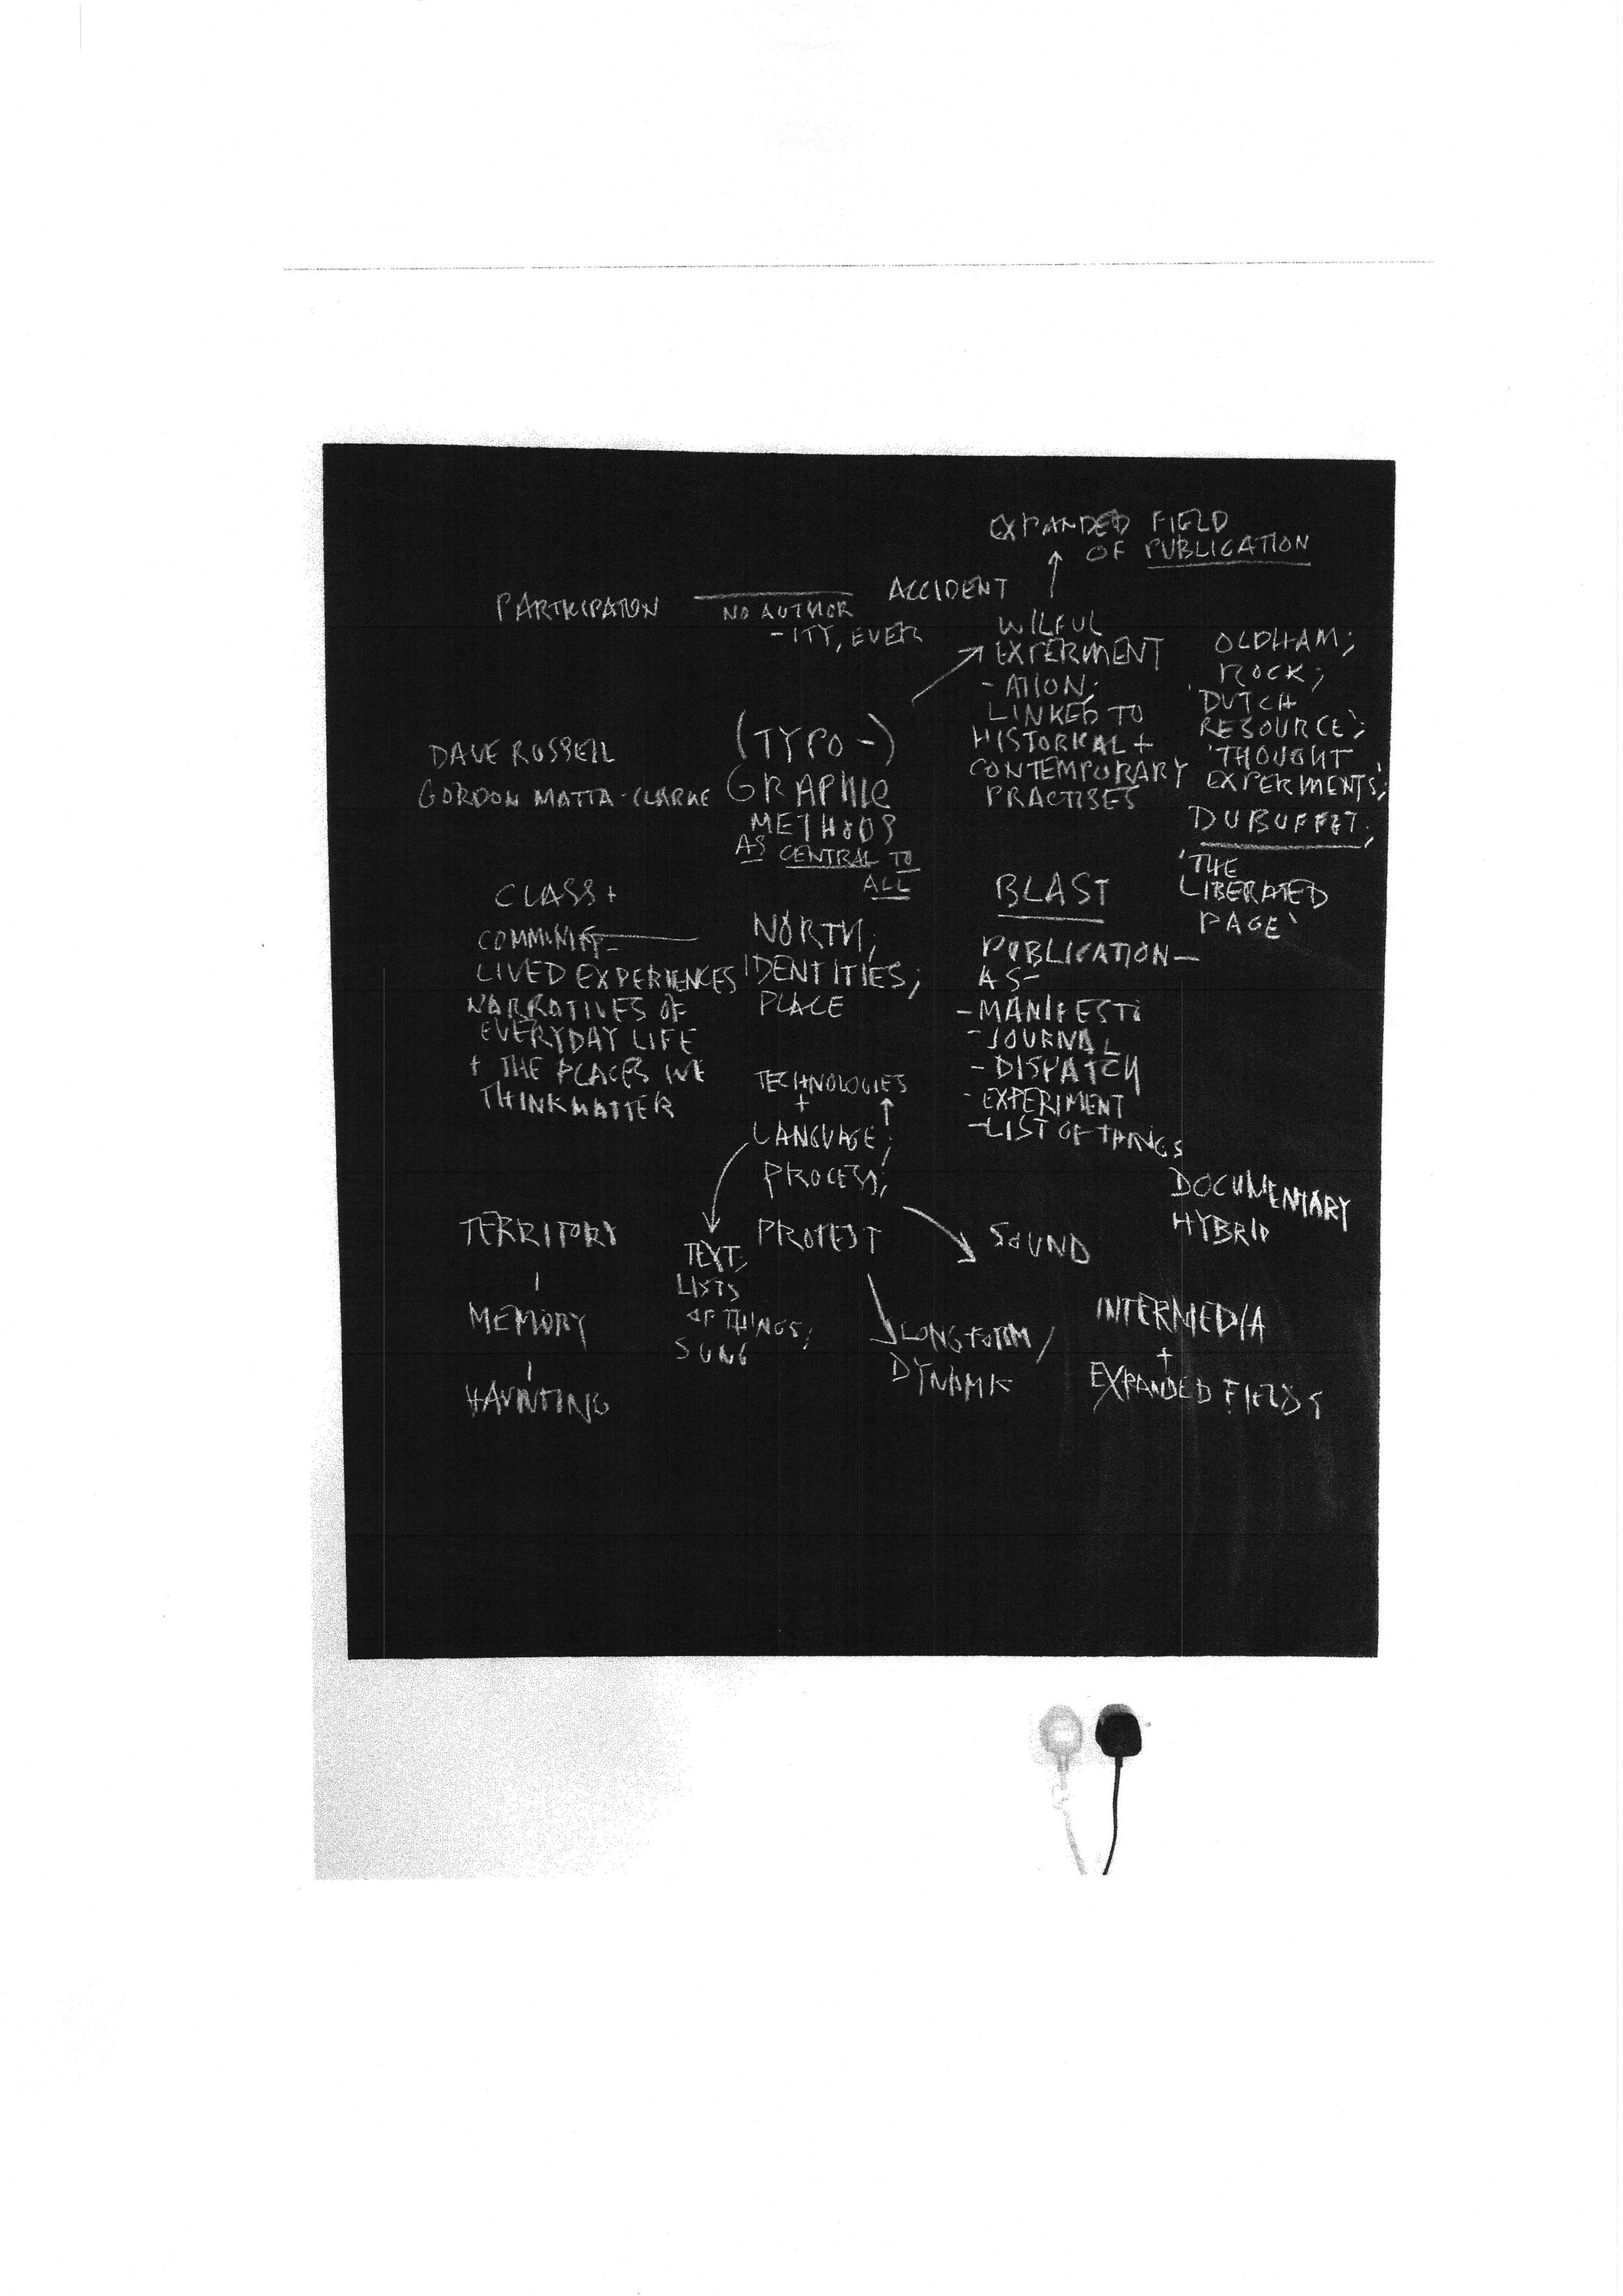 EXPANDED FIELD
OF PUBLICATION
PARTICIPATION
NO AUTHOR
-ITY, EVER
ACCIDENT
WILFUL
EXPERIMENT
-ATION;
LINKED TO
HISTORICAL +
CONTEMPORARY
PRACTISES
OLDHAM;
ROCK;
'DUTCH
RESOURCE';
'THOUGHT
EXPERIMENTS';
DUBUFFET;
'THE
LIBERATED
PAGE'
DAVE RUSSELL
GORDON MATTA-CLARKE
(TYPO-)
GRAPHIC
METHODS
AS CENTRAL TO
ALL
CLASS +
COMMUNITY-
LIVED EXPERIENCES
NARRATIVES OF
EVERYDAY LIFE
+ THE PLACES WE
THINK MATTER
NORTH;
IDENTITIES;
PLACE
BLAST
PUBLICATION-
AS-
-MANIFESTO
-JOURNAL
-DISPATCH
-EXPERIMENT
-LIST OF THINGS
TECHNOLOGIES
+
LANGUAGE;
PROCESS;
PROTEST
DOCUMENTARY
HYBRID
TERRITORY
MEMORY
HAUNTING
TEXT;
LISTS
OF THINGS;
SUNG
SOUND
LONG-FORM/
DYNAMIC
INTERMEDIA
+
EXPANDED FIELDS